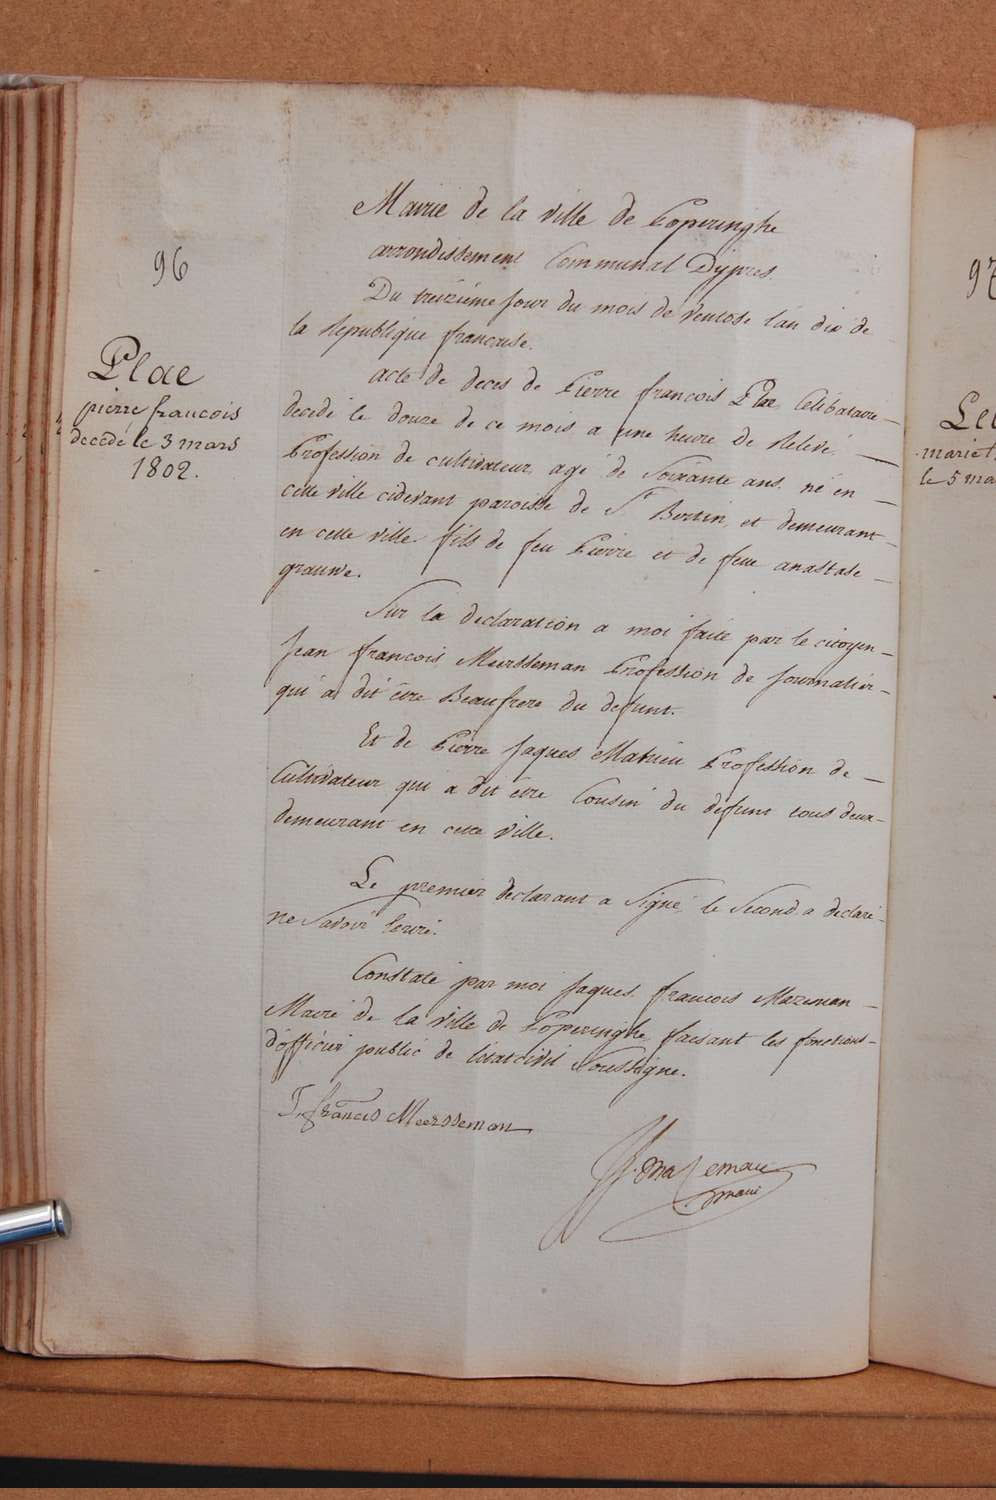 96
Plae
pierre francois
decedé le 3 mars
1802.
Mairie de la ville de Poperinghe
arrondissement Communal D'ypres.
Du treizième jour du mois de ventose l'an dix de
la République francaise.
acte de deces de Pierre francois Plae Celibataire
decedé le douze de ce mois a une heure de Relevé,
Profession de cultivateur, agé de Soixante ans, né en
cette ville cidevant paroisse de St Bertin, et demeurant
en cette ville fils de feu Pierre et de feue anastase
grauwe.
Sur la declaration a moi faite par le citoyen
Jean francois Meersseman Profession de journalier
qui a dit être Beaufrere du defunt.
Et de Pierre Jaques Mahieu Profession de
Cultivateur qui a dit être Cousin du defunt tous deux
demeurant en cette ville.
Le premier declarant a Signé, le Second a declaré
ne Savoir Ecrire.
Constaté par moi Jaques francois Mazeman
Maire de la ville de Poperinghe faisant les fonctions
d'officier public de l'etatcivil Soussigne.
J. francis Meersseman
JJ. Mazeman
maire
97
Le
marie
le 5 ma